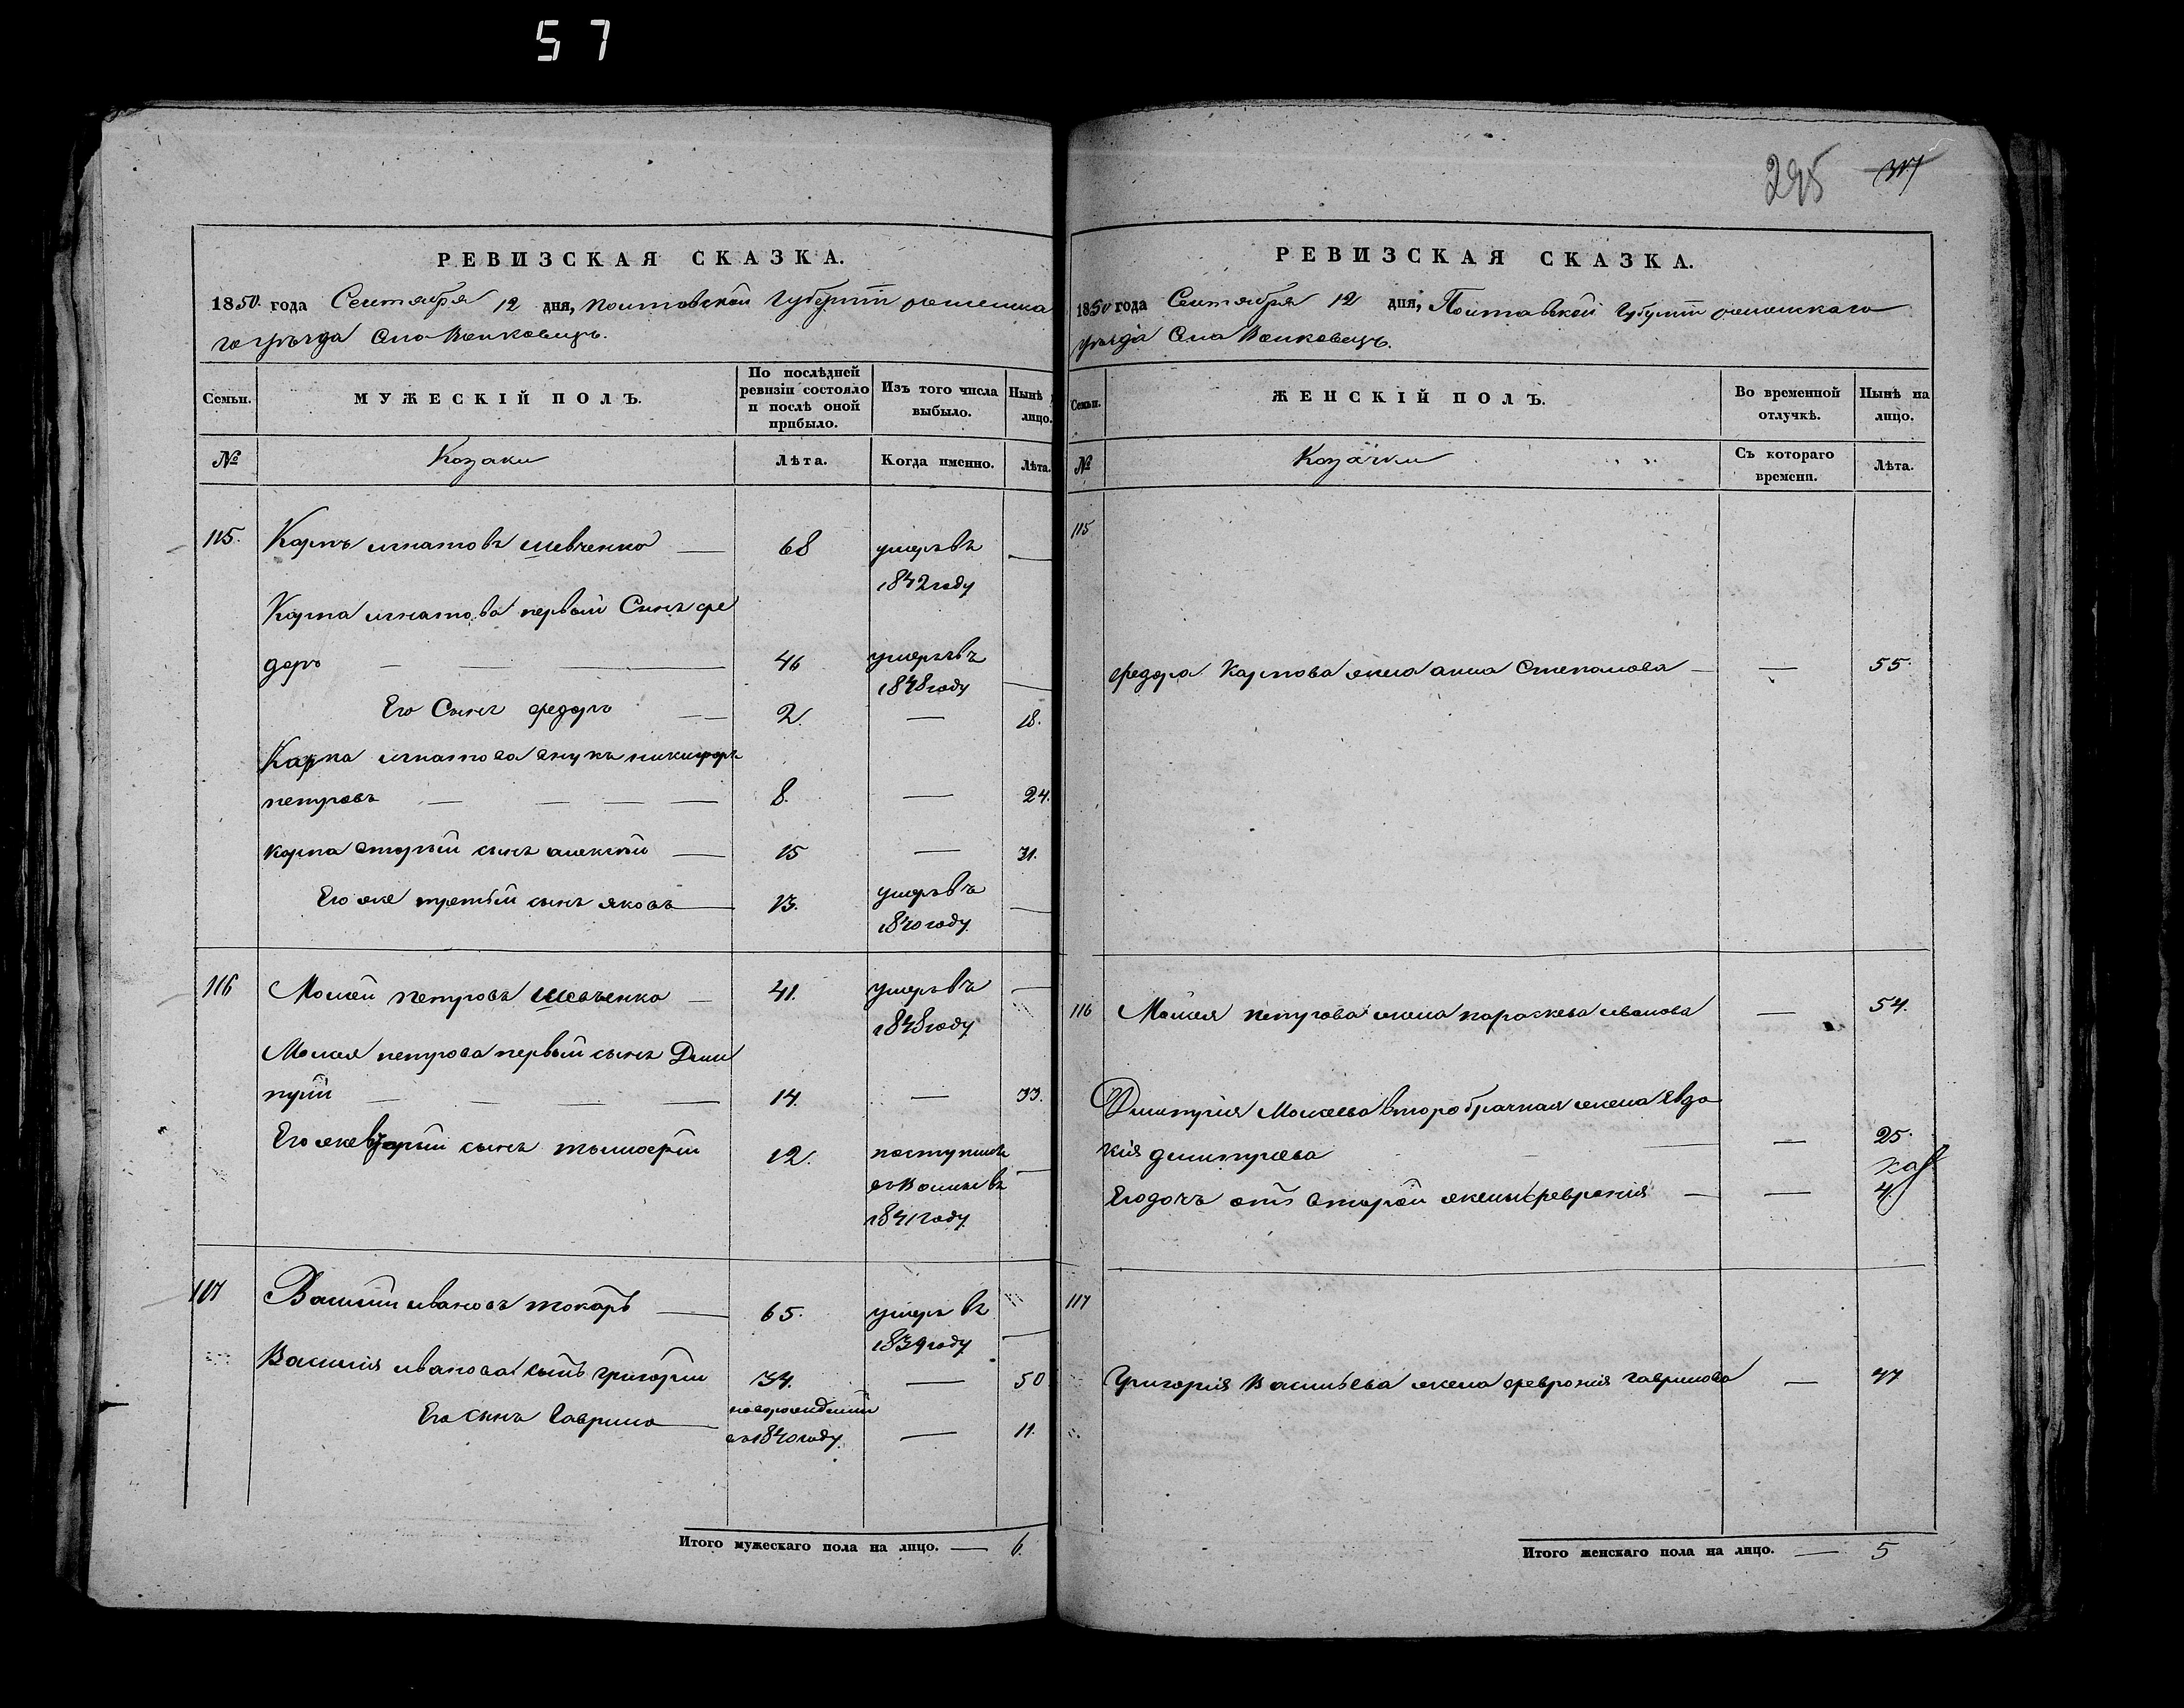 57
295
РЕВИЗСКАЯ СКАЗКА.
1850 года Сентября 12 дня, Полтавской Губернiи роменска
го уѣзда Села Волковецъ.
Семьи.
МУЖЕСКIЙ ПОЛЪ.
По послѣдней ревизiи состояло и послѣ оной прибыло.
Изъ того числа выбыло.
Нынѣ лицо.
№
Козаки
Лѣта.
Когда именно.
Лѣта.
115. Карпъ игнатовъ шевченко — 68 умеръ въ —
1842 году
Карпа игнатова первый Сынъ фе
доръ — — — 46 умеръ въ
1848 году —
Его Сынъ федоръ — — 2. — 18.
Карпа игнатова внукъ никифоръ
петровъ — — — — 8. — 24.
карпа вторый сынъ алексѣй — 15 — 31.
Его же третiй сынъ яковъ — 13. умеръ въ —
1840 году
116 Мойсей петровъ шевченко — 41. умеръ въ —
1848 году
Мойсея петрова первый сынъ Дми
трiй — — — — 14. — 33.
Его же вторый сынъ тимофей 12. поступилъ
въ 1841 году —
117 Василiй ивановъ токарь — 65. умеръ въ
1839 году —
Василiя иванова сынъ григорiй 34. — 50
Его сынъ Гаврило — новорожденный
въ 1840 году — 11.
Итого мужескаго пола на лицо. — 6.
РЕВИЗСКАЯ СКАЗКА.
1850 года Сентября 12 дня, Полтавской Губернiи роменскаго
уѣзда Села Волковецъ.
Семьи.
ЖЕНСКIЙ ПОЛЪ.
Во временной отлучкѣ.
Нынѣ на лицо.
№
Козачки
Съ котораго времени.
Лѣта.
115
федора Карпова жена анна Степанова — — 55.
116 Мойсея петрова жена параскева иванова — 54.
Дмитрiя Мойсеева второбрачная жена Евдо
кiя дмитрiева — — 25.
Его дочь отъ второй жены феврония — — 4
117
Григорiя Васильева жена феврония гаврилова — 47
Итого женскаго пола на лицо. — 5